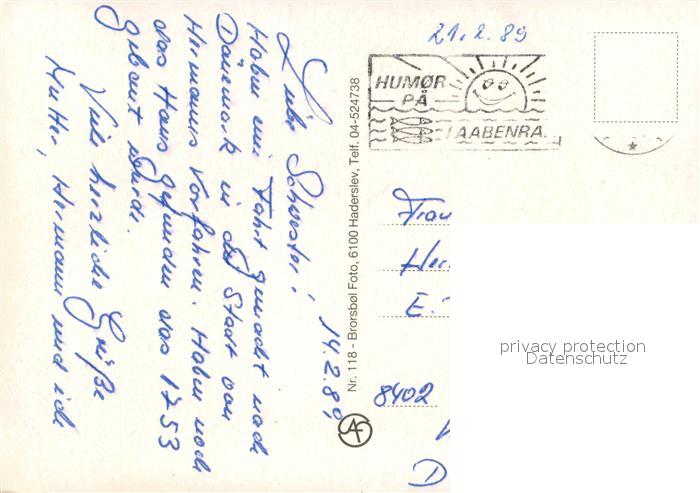 21.2.89
HUMØR
PÅ
I AABENRA.
14.2.89
Liebe Schwester!
Haben eine Fahrt gemacht nach
Dänemark in die Stadt von
Hermanns Vorfahren. Haben noch
das Haus gefunden das 1753
gebaut wurde.
Viele herzliche Grüße
Mutter, Hermann und ich
Nr. 118 - Brorsbøl Foto, 6100 Haderslev, Telf. 04-524738
Frau
Her
E.
8402
D
privacy protection
Datenschutz